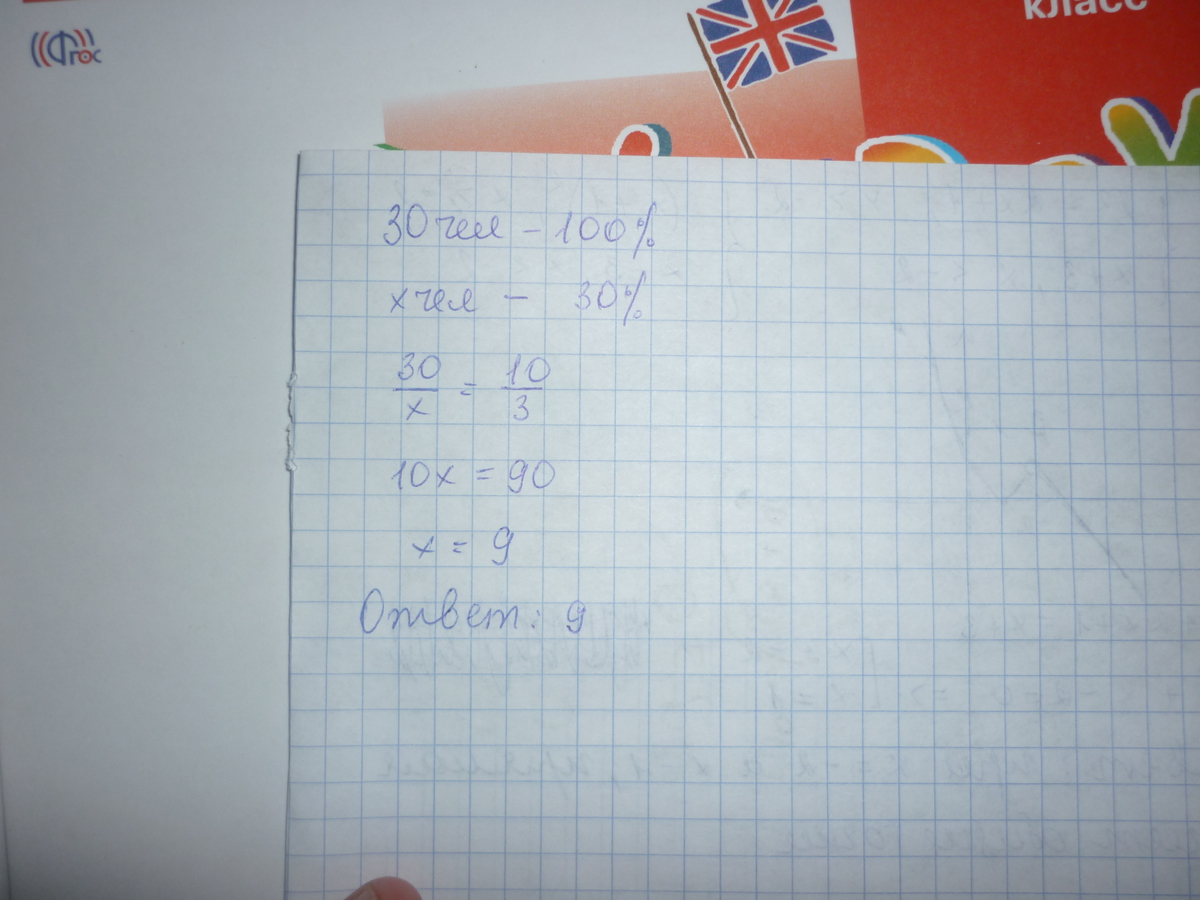 ФГОС
класс
30 чел – 100%
х чел – 30%
30/х = 10/3
10х = 90
х = 9
Ответ: 9